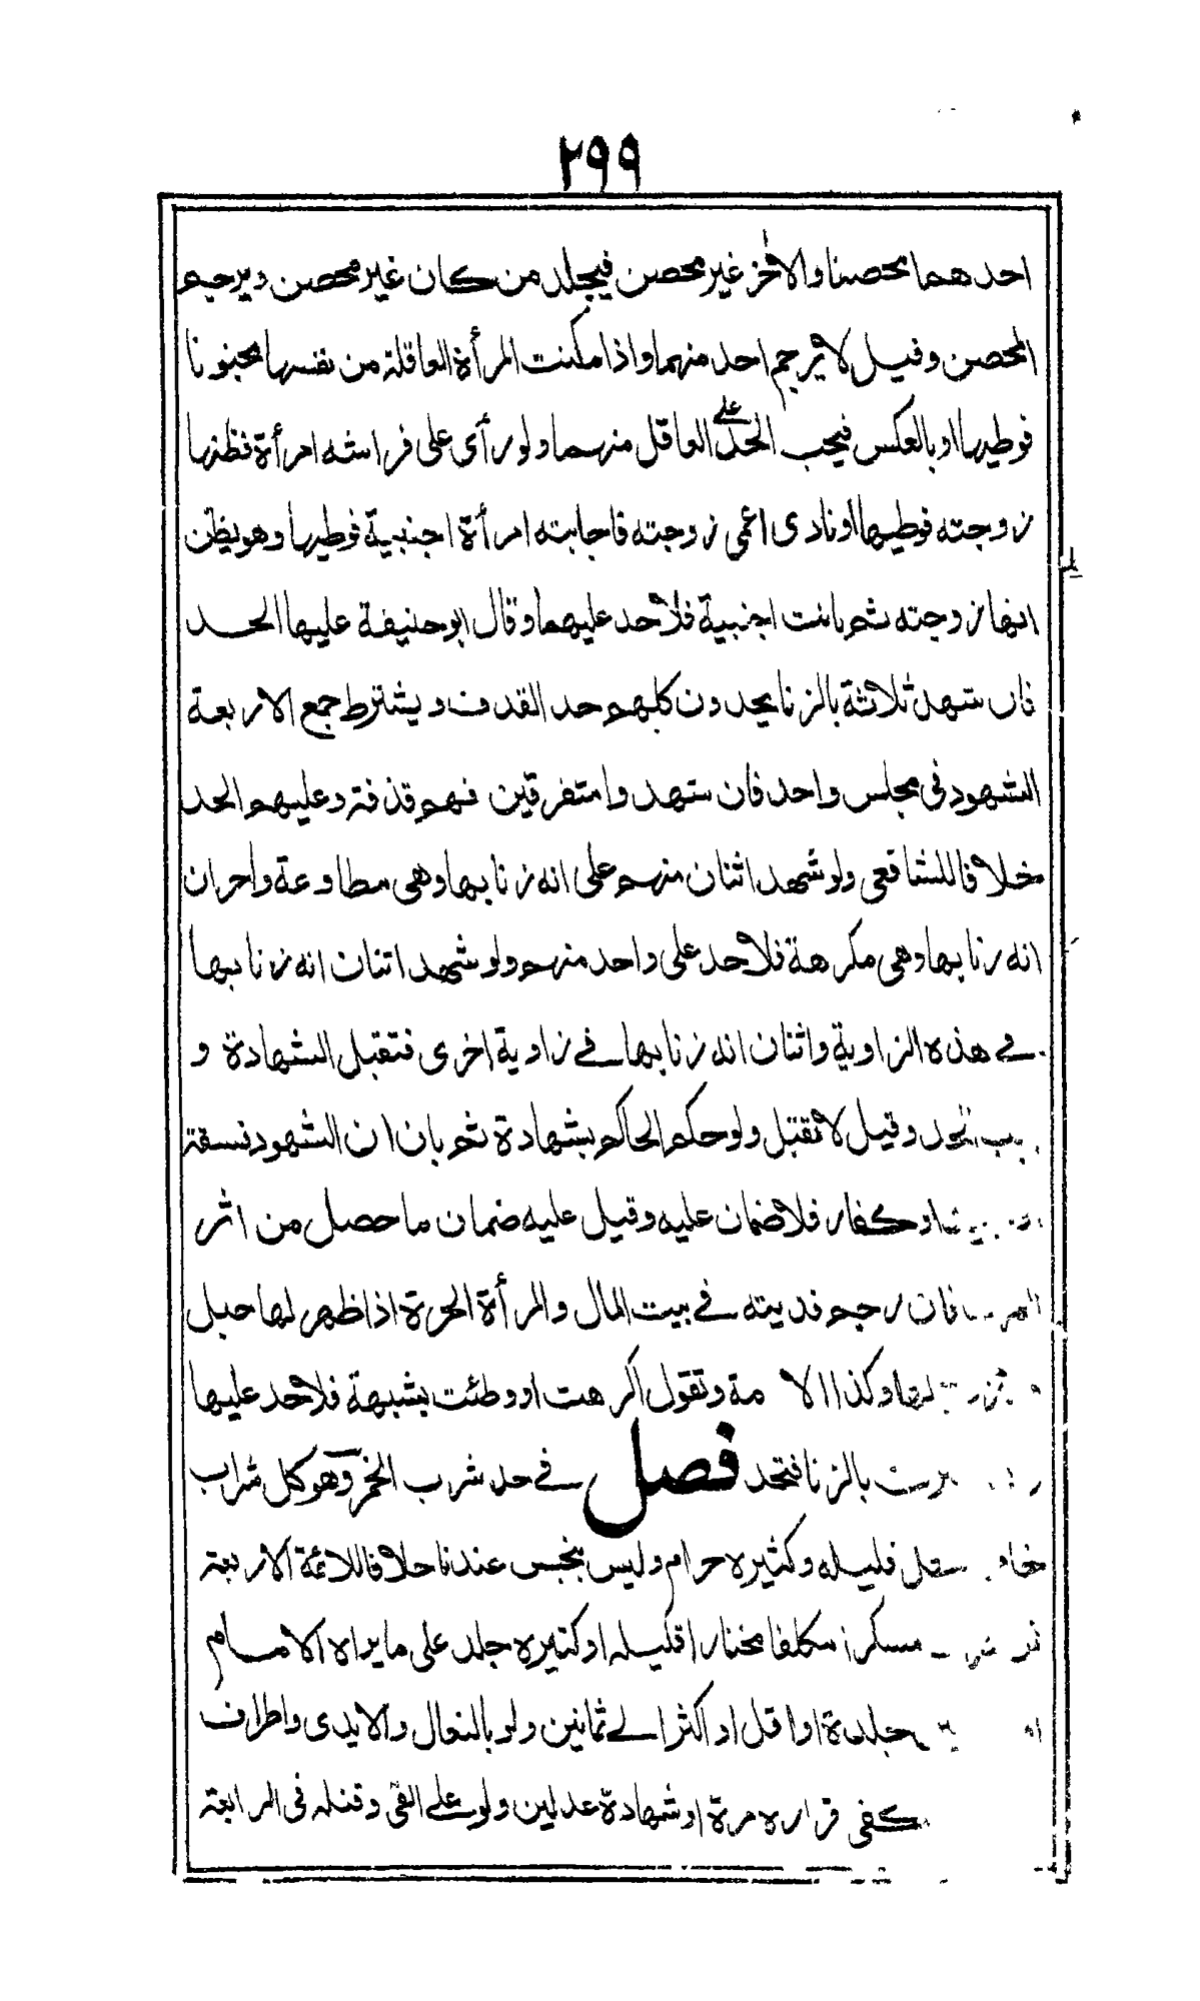 ٢٩٩
احدهما محصنا والاخر غير محصن فيجلد من كان غير محصن ويرجم
المحصن وقيل لا يرجم احد منهما واذا مكنت المرأة العاقلة من نفسها مجنونا
فوطيها او بالعكس فيجب الحد على العاقل منهما ولو رأى على فراشه امرأة فظنها
زوجته فوطيها او نادى اعمى زوجته فاجابته امرأة اجنبية فوطيها وهو يظن
انها زوجته ثم بانت اجنبية فلا حد عليهما وقال ابو حنيفة عليها الحد
فان شهد ثلاثة بالزنا يحدون كلهم حد القدف ويشترط جمع الاربعة
الشهود فى مجلس واحد فان شهدوا متفرقين فهم قذفة وعليهم الحد
خلافا للشافعى ولو شهد اثنان منهم على انه زنا بها وهى مطاوعة واخران
انه زنا بها وهى مكرهة فلا حد على واحد منهم ولو شهد اثنان انه زنا بها
فے هذه الزاوية واثنان انه زنا بها فے زاوية اخرى فتقبل الشهادة و
الحد وقيل لا تقبل ولو حكم الحاكم بشهادة ثم بان ان الشهود فسقة
او كفار فلا ضمان عليه وقيل عليه ضمان ما حصل من اثر
فان رجم فديته فے بيت المال والمرأة الحرة اذا ظهر لها حبل
لها وكذا الامة وتقول اكرهت او وطئت بشبهة فلا حد عليها
بالزنا فتحد فصل فے حد شرب الخمر وهو كل شراب
قليله وكثيره حرام وليس بنجس عندنا خلافا للائمة الاربعة
مسكرا مكلفا مختارا قليله او كثيره جلد على ما يراه الامام
جلدة او اقل او اكثر الے ثمانين ولو بالنعال والايدى واطراف
كفى قراره مرة او شهادة عدلين ولو على القئ وقتله فى الرابعة